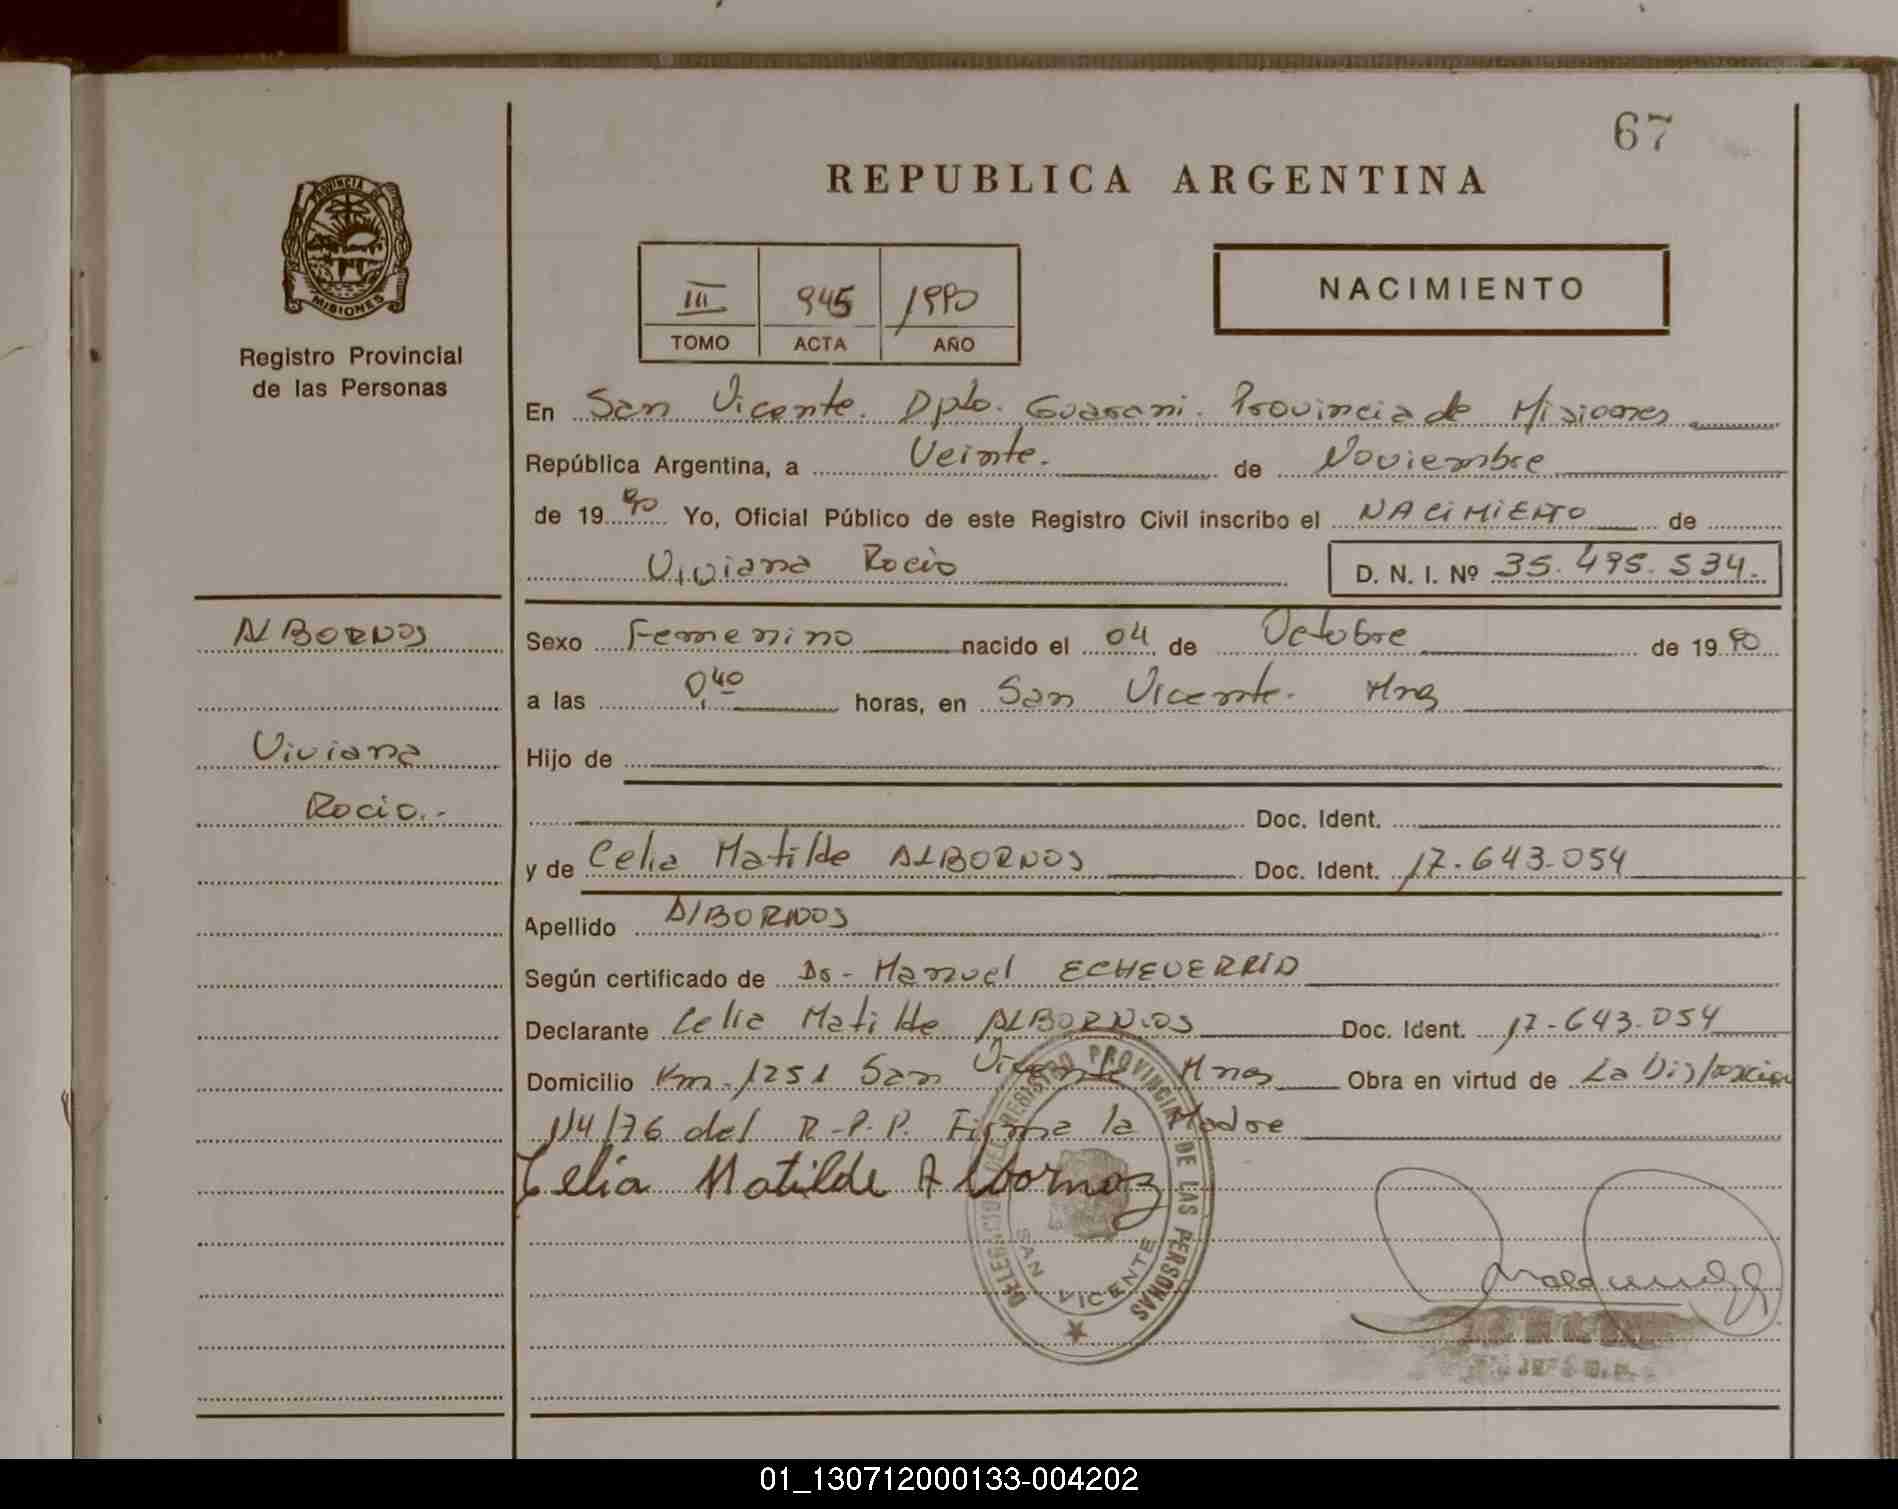 67
REPUBLICA ARGENTINA
PROVINCIA DE
MISIONES
Registro Provincial
de las Personas
III 945 1990
TOMO ACTA AÑO
NACIMIENTO
En San Vicente. Dpto. Guarani. Provincia de Misiones
República Argentina, a Veinte. de Noviembre
de 19 90 Yo, Oficial Público de este Registro Civil inscribo el NACIMIENTO de
Viviana Rocio D. N. I. Nº 35.495.534.
ALBORNOS
Viviana
Rocio.-
Sexo Femenino nacido el 04 de Octubre de 19 90
a las 0,40 horas, en San Vicente. Mnes
Hijo de
Doc. Ident.
y de Celia Matilde ALBORNOS Doc. Ident. 17.643.054
Apellido ALBORNOS
Según certificado de Dr. Manuel ECHEVERRIA
Declarante Celia Matilde ALBORNOS Doc. Ident. 17-643.054
Domicilio Km. 1251 San Vicente Mnes Obra en virtud de La Disposicion
114/76 del R.P.P. Firma la Madre
Celia Matilde Albornoz
DELEGACION DEL REGISTRO PROVINCIAL DE LAS PERSONAS
SAN VICENTE
01_130712000133-004202